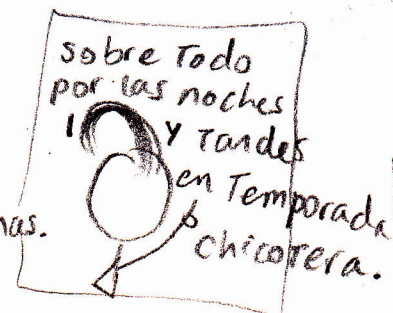 sobre Todo
por las noches
y Tardes
en Temporada
nas.
chicotera.